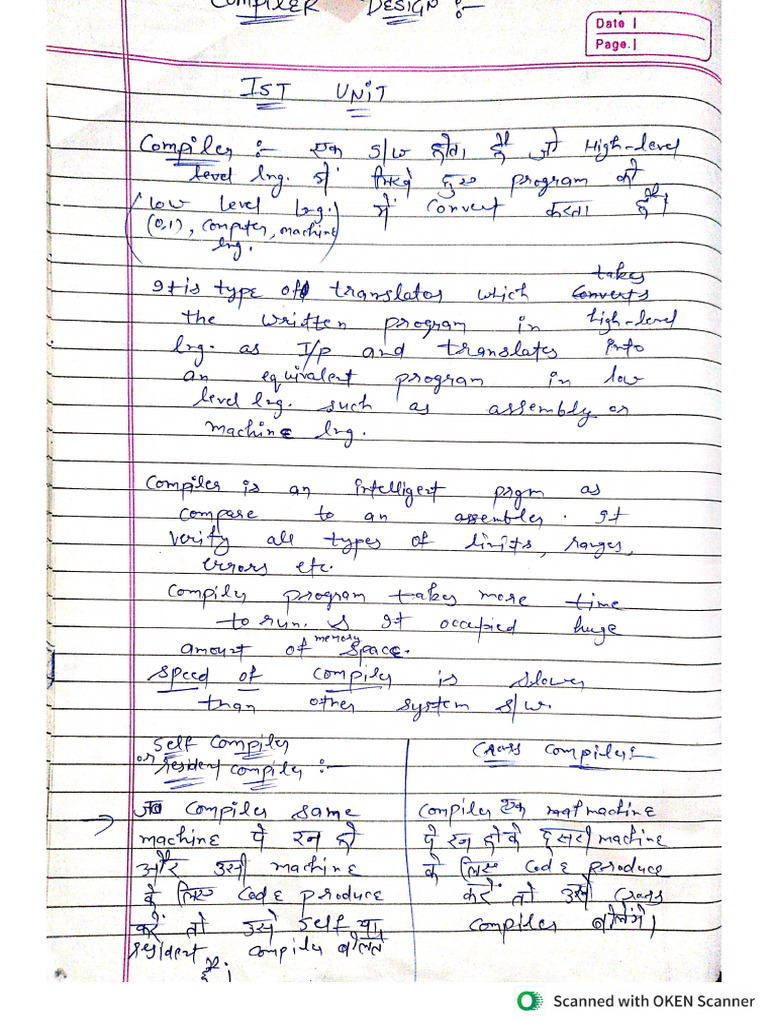 COMPILER DESIGN :-
Date |
Page. |
IST UNIT
Compiler :- एक S/W होता है जो High-level
level lng. में लिखे हुए program को
(low level lng.) में convert करता है।
(0,1), computer, machine
lng.
It is type of translator which takes converts
the written program in high-level
lng. as I/p and translates into
an equivalent program in low
level lng. such as assembly or
machine lng.
Compiler is an intelligent prgm as
compare to an assembler. It
verify all types of limits, ranges,
errors etc.
Compiler program takes more time
to run. & It occupied huge
amount of memory space.
Speed of compiler is slower
than other system S/W.
Self Compiler
or resident compiler :-
जब compiler same
machine पे रन हो
और उसी machine
के लिए code produce
करें तो उसे self या
resident compiler बोलते
हैं।
Cross Compiler :-
Compiler एक machine
पे रन होके दूसरी machine
के लिए code produce
करें तो उसे cross
compiler बोलेंगे।
Scanned with OKEN Scanner